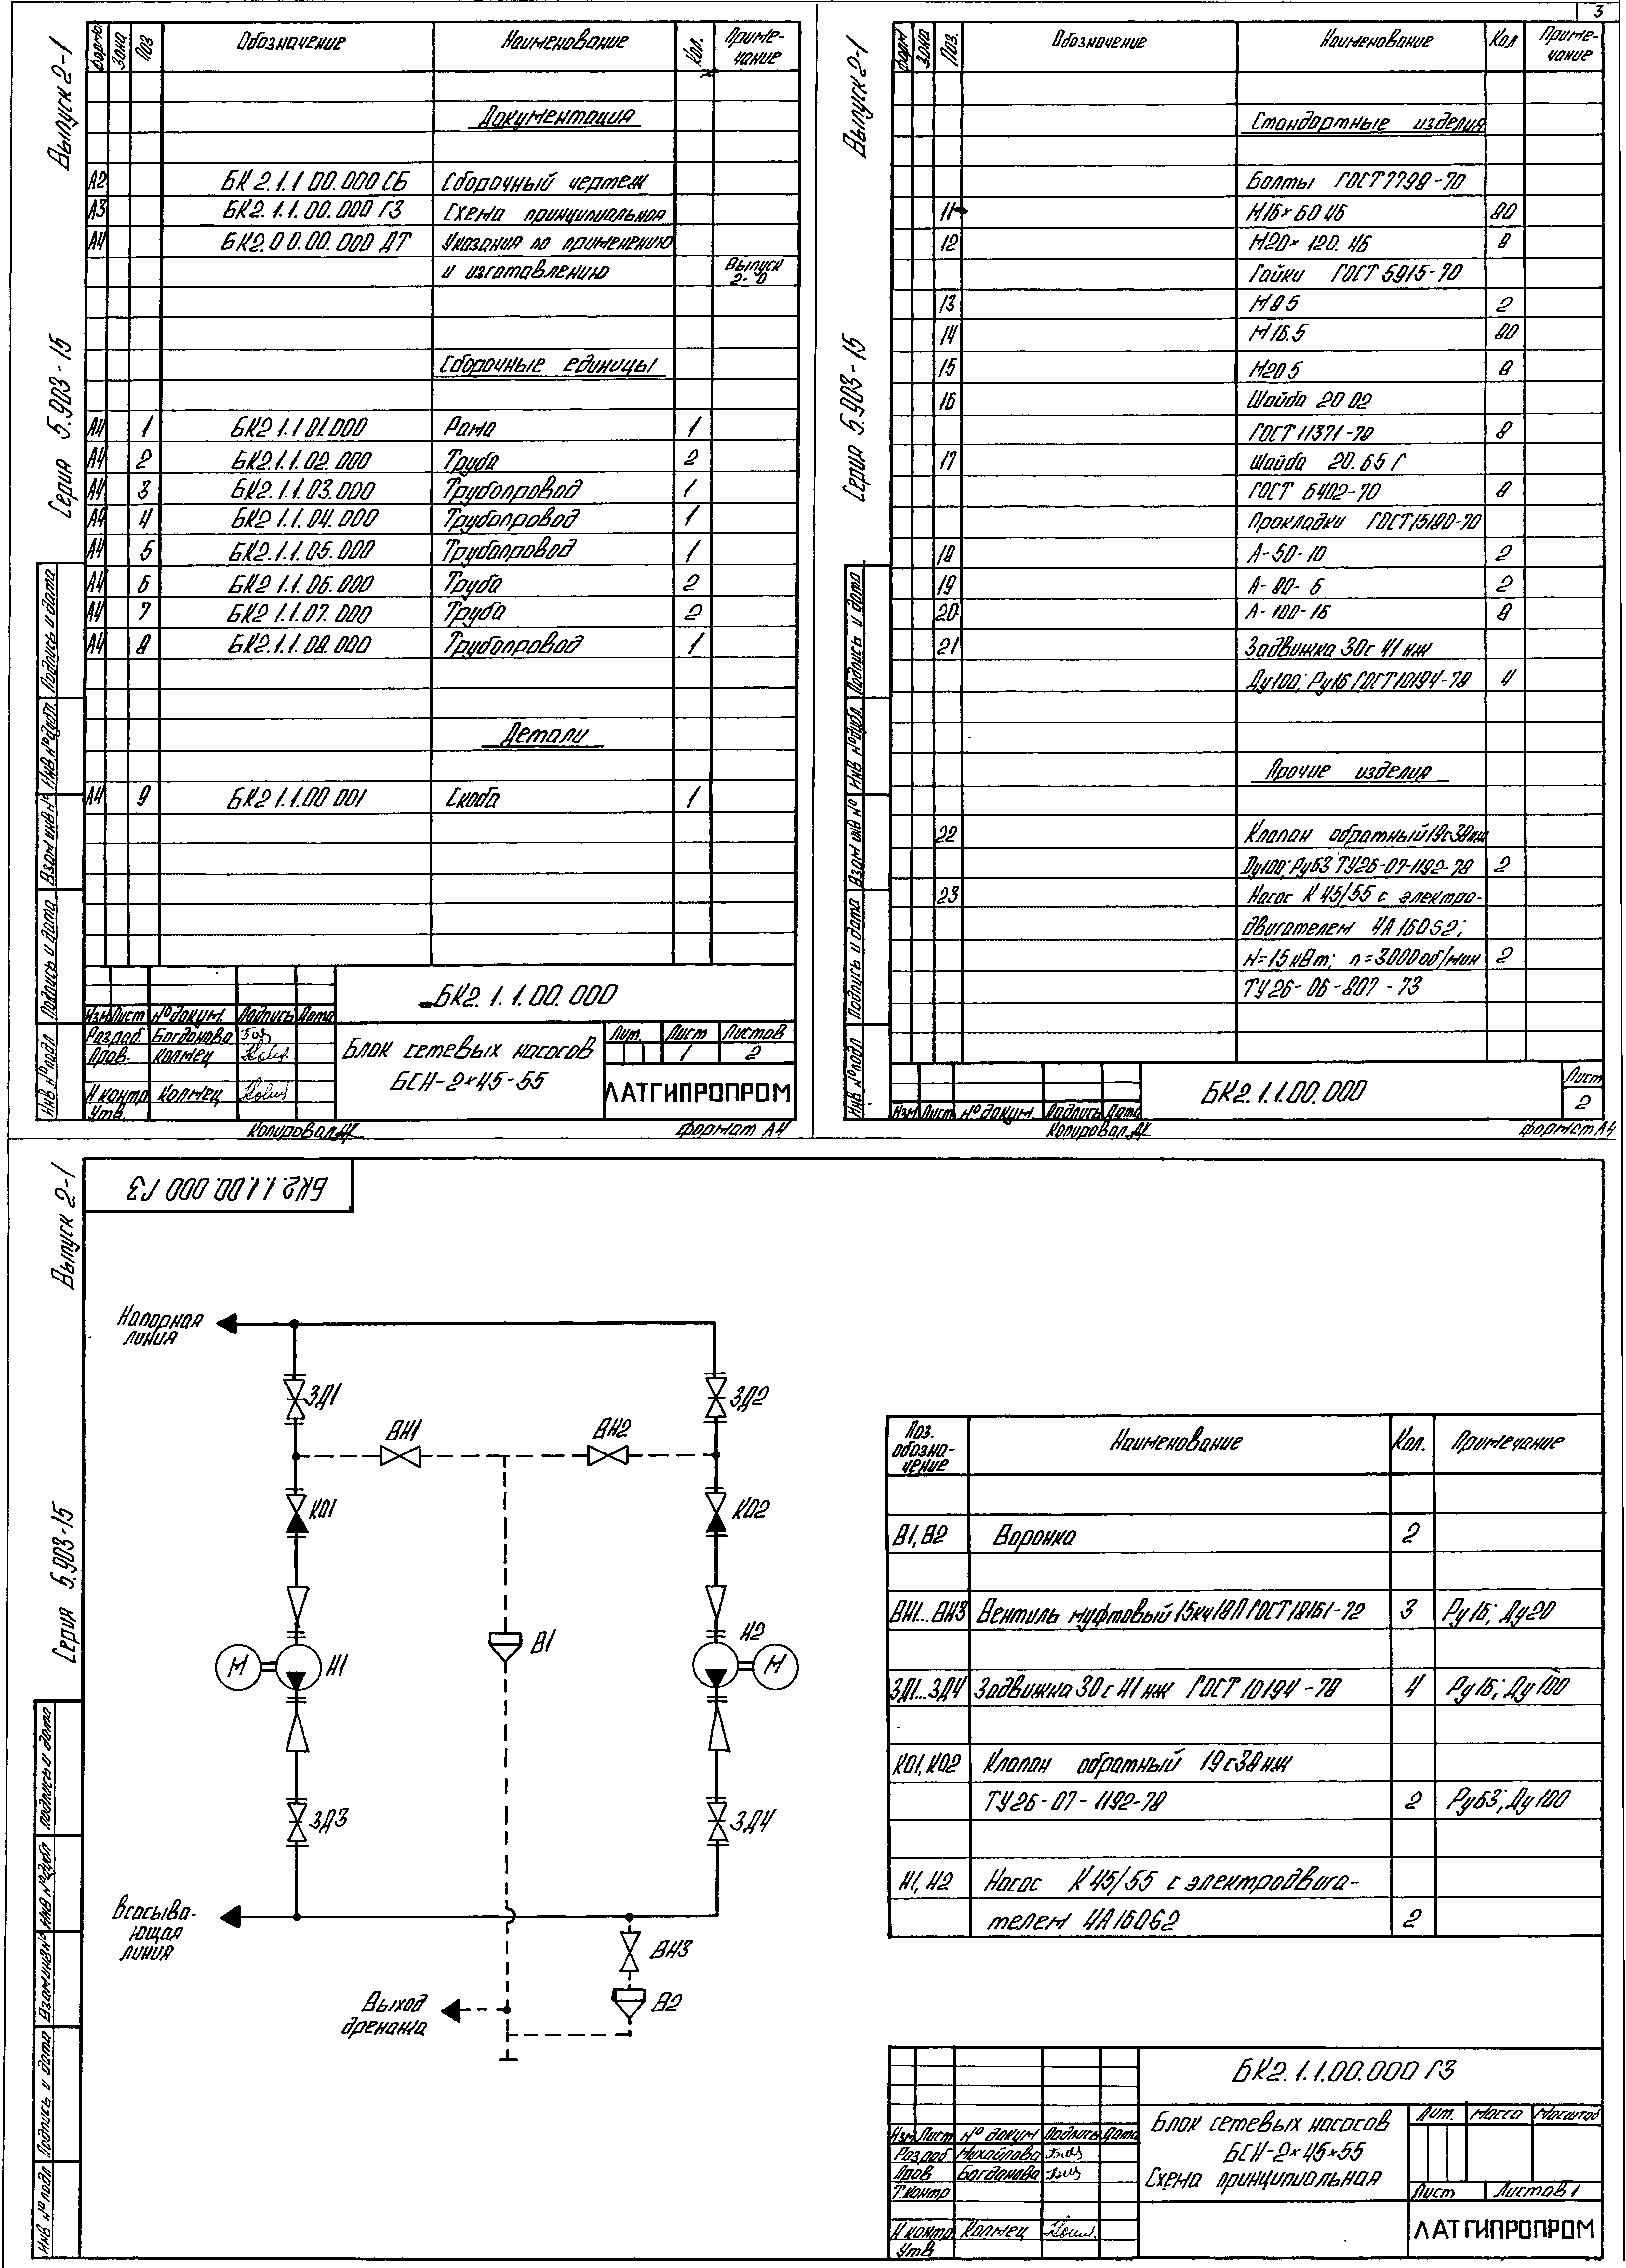 3
Выпуск 2-1
Серия 5.903-15
Формат Зона Поз Обозначение Наименование Кол. Приме-
чание
Документация
А2 БК 2.1.1 00.000 СБ Сборочный чертеж
А3 БК2.1.1.00.000 ГЗ Схема принципиальная
А4 БК2.0 0.00.000 ДТ Указания по применению
и изготавлению Выпуск
2-0
Сборочные единицы
А4 1 БК2 1.1 01.000 Рама 1
А4 2 БК2.1.1.02.000 Труба 2
А4 3 БК2.1.1.03.000 Трубопровод 1
А4 4 БК2 1.1.04.000 Трубопровод 1
А4 5 БК2.1.1.05.000 Трубопровод 1
А4 6 БК2 1.1.06.000 Труба 2
А4 7 БК2 1.1.07.000 Труба 2
А4 8 БК2.1.1.08.000 Трубопровод 1
Детали
А4 9 БК2 1.1.00 001 Скоба 1
Подпись и дата
Инв №дубл.
Взам инв №
Подпись и дата
Инв №подл
БК2.1.1.00.000
Изм Лист №докум. Подпись Дата
Разраб. Богданова
Пров. Колмец
Н контр Колмец
Утв.
Блок сетевых насосов
БСН-2×45-55
Лит. Лист Листов
1 2
ЛАТГИПРОПРОМ
Копировал
формат А4
Выпуск 2-1
Серия 5.903-15
Форм Зона Поз. Обозначение Наименование Кол Приме-
чание
Стандартные изделия
Болты ГОСТ7798-70
11 М16×60 46 80
12 М20×120.46 8
Гайки ГОСТ 5915-70
13 М8 5 2
14 М16.5 80
15 М20 5 8
16 Шайба 20 02
ГОСТ 11371-78 8
17 Шайба 20.65 Г
ГОСТ 6402-70 8
Прокладки ГОСТ15180-70
18 А-50-10 2
19 А-80-6 2
20 А-100-16 8
21 Задвижка 30с 41 нж
Ду100; Ру16 ГОСТ10194-78 4
Прочие изделия
22 Клапан обратный 19с38нж
Ду100; Ру63 ТУ26-07-1192-78 2
23 Насос К 45/55 с электро-
двигателем 4А160S2;
N=15 кВт; n=3000 об/мин 2
ТУ 26-06-807-73
Подпись и дата
Инв №дубл.
Взам инв №
Подпись и дата
Инв №подл
БК2.1.1.00.000
Лист
2
Изм Лист №докум. Подпись Дата
Копировал
формат А4
Выпуск 2-1
Серия 5.903-15
БК2.1.1.00.000 ГЗ
Напорная
линия
ЗД1
ЗД2
ВН1
ВН2
КО1
КО2
В1
М
Н1
Н2
М
ЗД3
ЗД4
Всасыва-
ющая
линия
ВН3
В2
Выход
дренажа
Поз.
обозна-
чение
Наименование Кол. Примечание
В1, В2 Воронка 2
ВН1...ВН3 Вентиль муфтовый 15кч18П ГОСТ 18161-72 3 Ру16; Ду20
ЗД1...ЗД4 Задвижка 30 с 41 нж ГОСТ 10194-78 4 Ру16; Ду100
КО1, КО2 Клапан обратный 19с38нж
ТУ26-07-1192-78 2 Ру63; Ду100
Н1, Н2 Насос К 45/55 с электродвига-
телем 4А160S2 2
подпись и дата
Инв №дубл
Взам инв №
Подпись и дата
Инв №подл
БК2.1.1.00.000 ГЗ
Изм Лист № докум Подпись Дата
Разраб Михайлова
Пров Богданова
Т.контр
Н контр Колмец
Утв
Блок сетевых насосов
БСН-2×45×55
Схема принципиальная
Лит. Масса Масштаб
Лист Листов 1
ЛАТГИПРОПРОМ